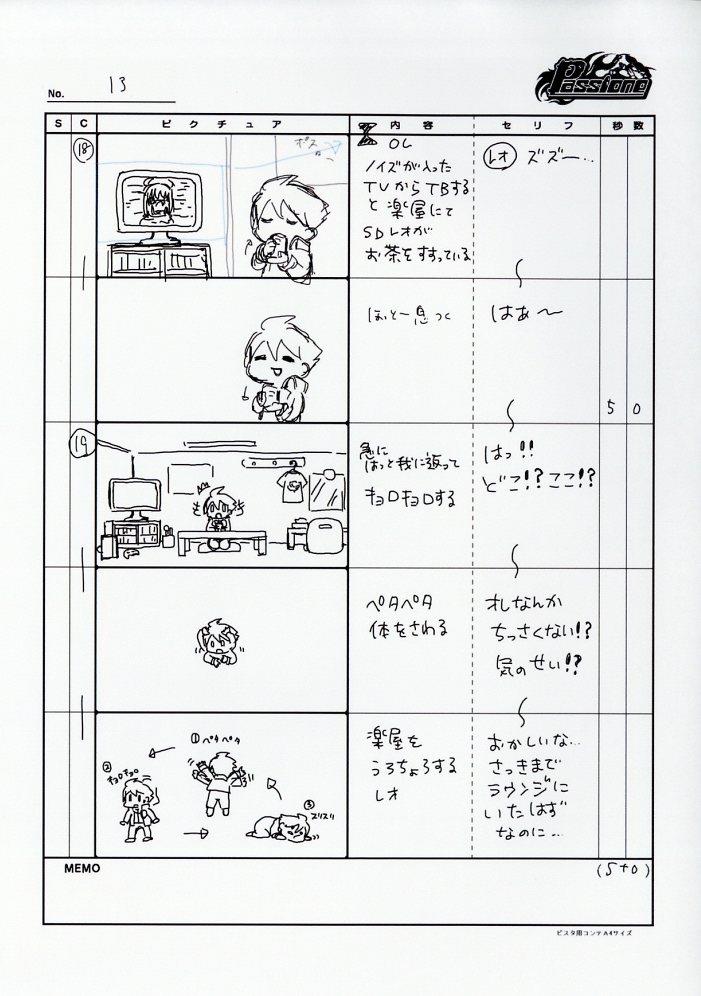 No. 13
Passione
S C ピクチュア 内容 セリフ 秒数
18
OL
ノイズが入った
TVからTBする
と楽屋にて
SDレオが
お茶をすすっている
レオ ズズー…
ほっと一息つく
はぁ〜
5 0
19
急に
はっと我に返って
キョロキョロする
はっ!!
どこ!?ここ!?
ペタペタ
体をさわる
オレなんか
ちっさくない!?
気のせい!?
①ペタペタ
②キョロキョロ
③ズリズリ
楽屋を
うろちょろする
レオ
おかしいな…
さっきまで
ラウンジに
いたはず
なのに…
MEMO
(5+0)
ビスタ用コンテA4サイズ